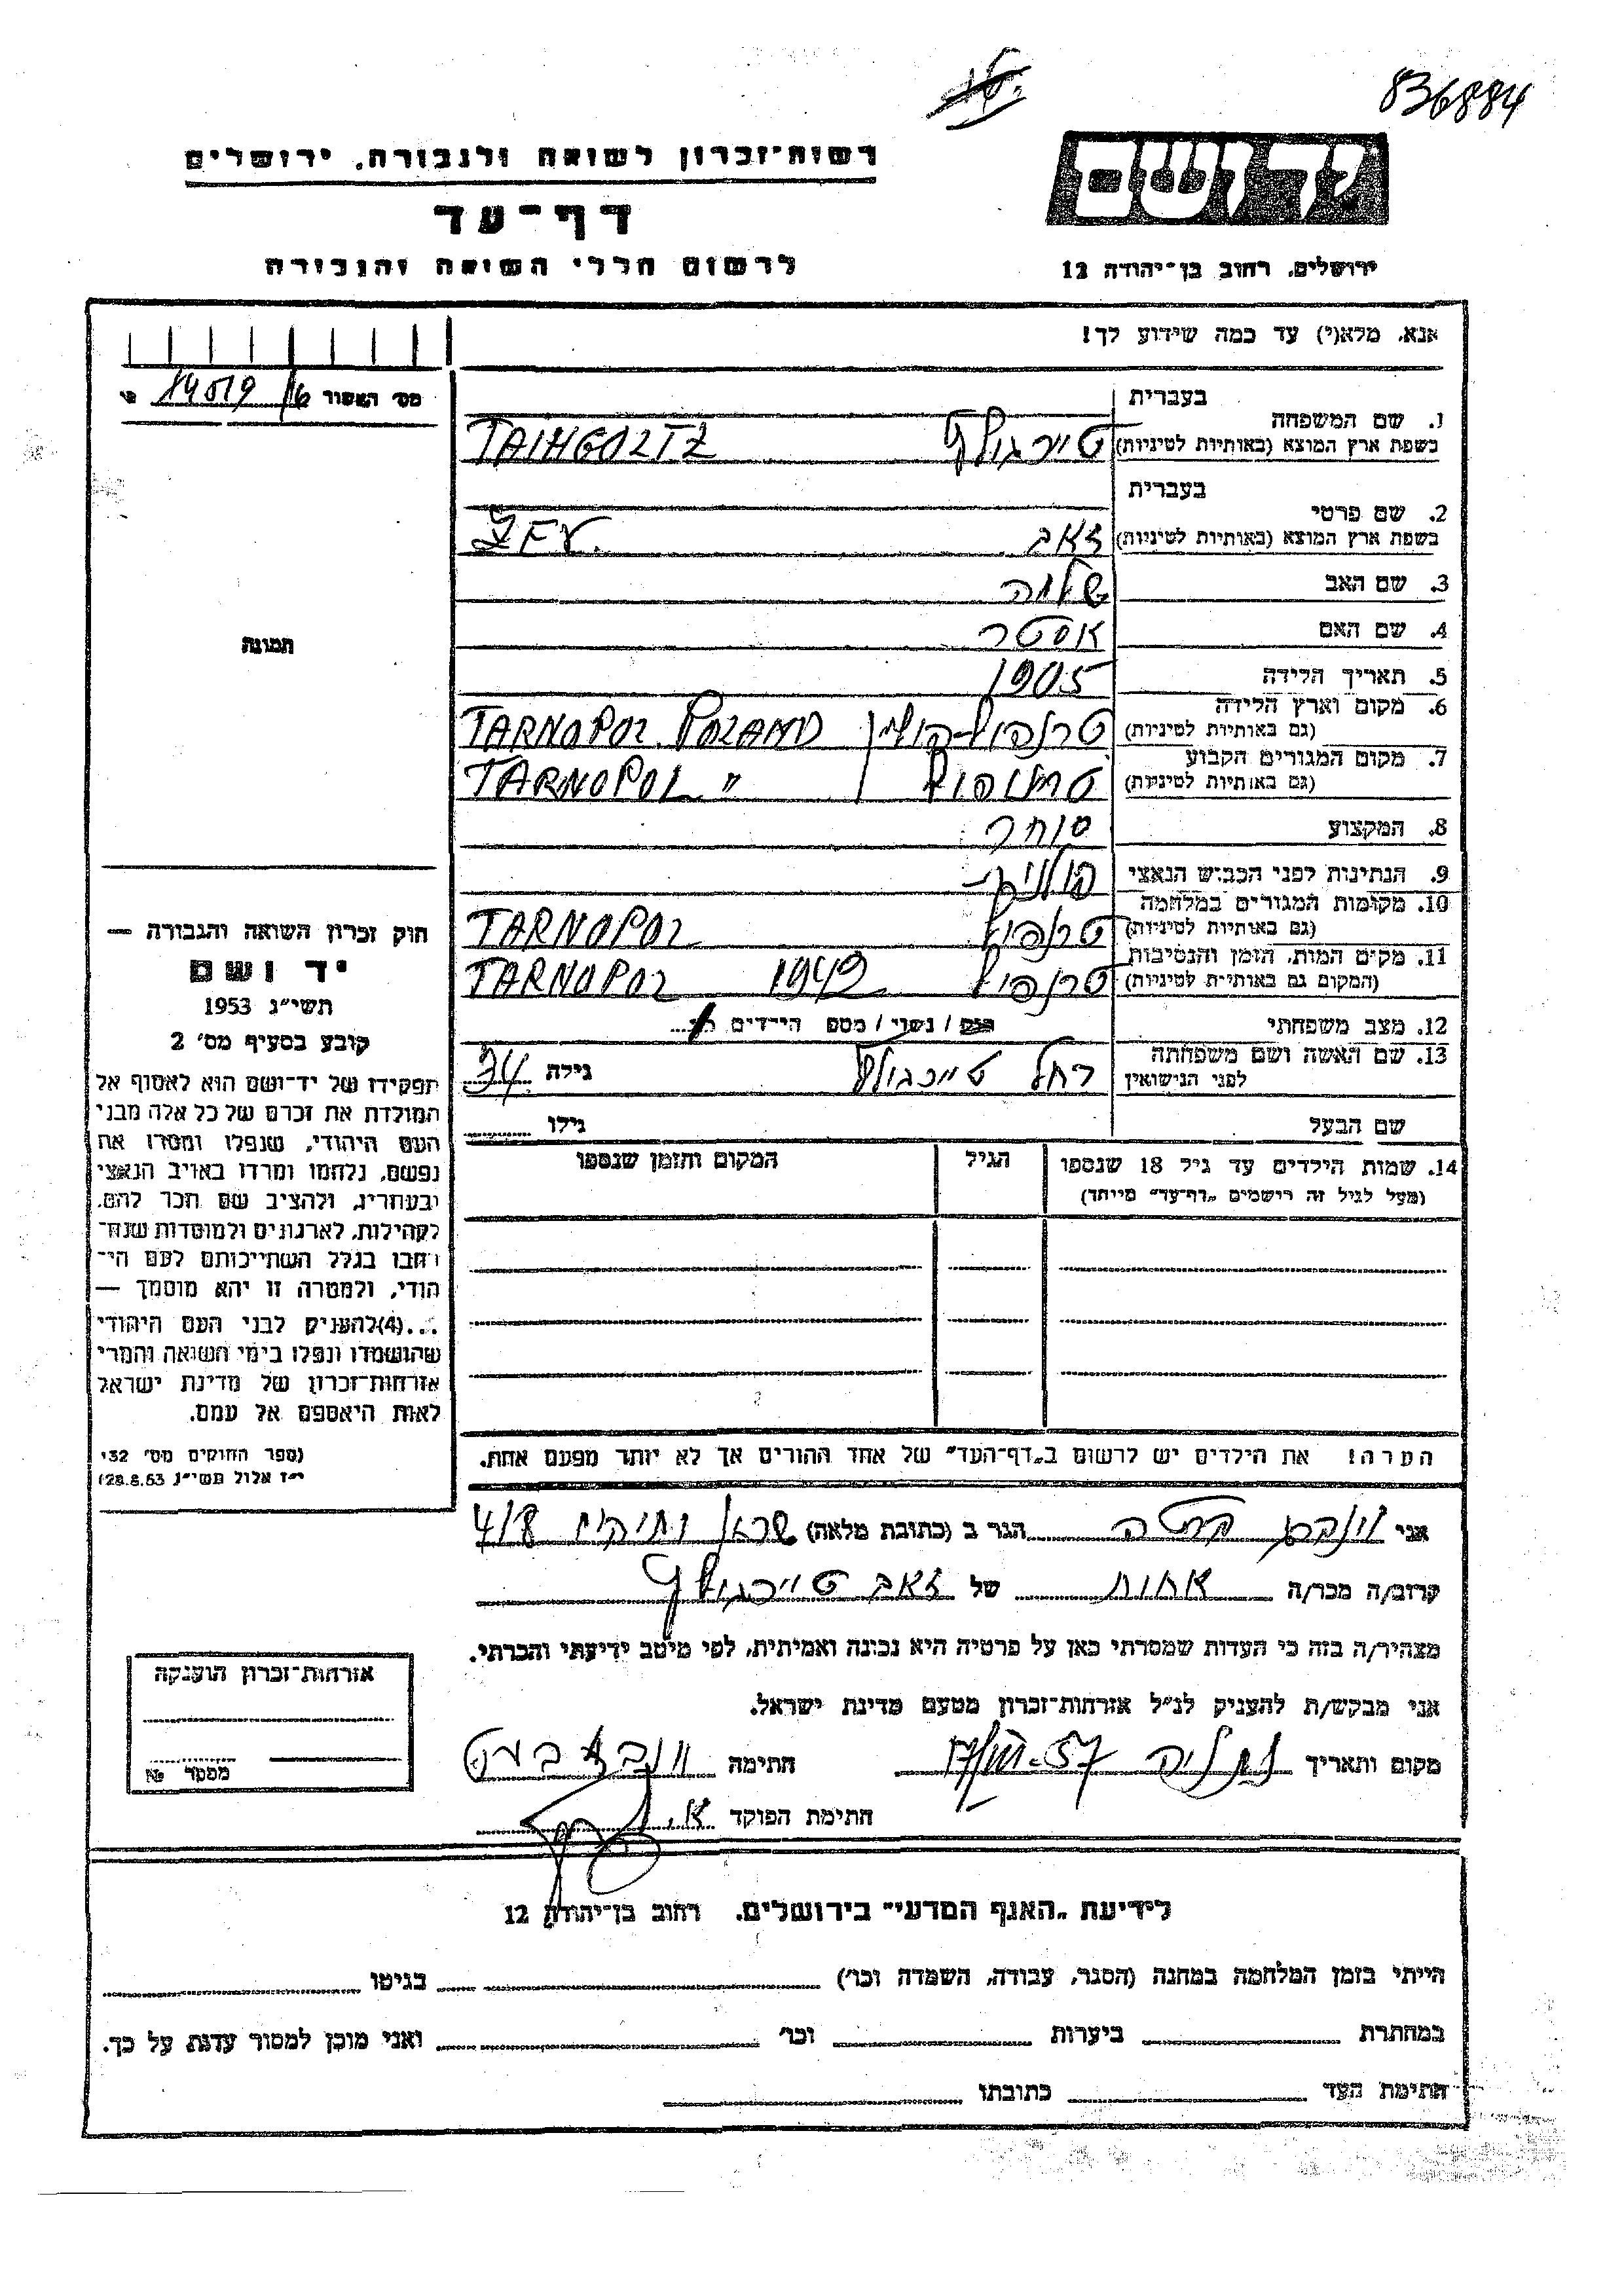 836884
רשות־זכרון לשואה ולגבורה. ירושלים
יד ושם
דף־עד
לרשום חללי השואה והגבורה
ירושלים. רחוב בן־יהודה 12
אנא. מלא(י) עד כמה שידוע לך!
מס' האסור
בעברית
1. שם המשפחה
בשפת ארץ המוצא (באותיות לטיניות)
טייכגולץ TAIHGOLTZ
בעברית
2. שם פרטי
בשפת ארץ המוצא (באותיות לטיניות)
זאב ZEV.
3. שם האב שלמה
4. שם האם אסטר
5. תאריך הלידה 1905
6. מקום וארץ הלידה
(גם באותיות לטיניות)
טרנפול-פולין TARNOPOL POLAND
7. מקום המגורים הקבוע
(גם באותיות לטיניות)
טרנופול TARNOPOL "
8. המקצוע סוחר
9. הנתינות לפני הכבוש הנאצי
10. מקומות המגורים במלחמה
(גם באותיות לטיניות)
טרנפול TARNOPOL
11. מקים המות. הזמן והנסיבות
(המקום גם באותיית לטיניות)
טרנפול 1942 TARNOPOL
12. מצב משפחתי רווק / נשוי / מספ הילדים
13. שם האשה ושם משפחתה
לפני הנישואין
רחל טייכגולץ גילה 34
שם הבעל גילו
14. שמות הילדים עד גיל 18 שנספו הגיל המקום והזמן שנספו
(מעל לגיל זה רישמים „דף־עד" מייחד)
הערה! את הילדים יש לרשום ב„דף־העד" של אחד ההורים אך לא יותר מפעם אחת.
תמונה
חוק זכרון השואה והגבורה —
יד ושם
תשי״ג 1953
קובע בסעיף מס׳ 2
תפקידו של יד־ושם הוא לאסוף אל
המולדת את זכרם של כל אלה מבני
העם היהודי, שנפלו ומסרו את
נפשם, נלחמו ומרדו באויב הנאצי
ובעוזריו, ולהציב שם וזכר להם,
לקהילות, לארגונים ולמוסדות שנח־
רחבו בגלל השתייכותם לעם הי־
הודי, ולמטרה זו יהא מוסמך —
...(4)להעניק לבני העם היהודי
שהושמדו ונפלו בימי השואה והמרי
אזרחות־זכרון של מדינת ישראל
לאות היאספם אל עמם.
(ספר החוקים מס׳ 132
י״ז אלול תשי״ג 28.8.53)
אני הגר ב (כתובת מלאה) 4/8
קרוב/ה מכר/ה אחות של זאב טייכגולץ
מצהיר/ה בזה כי העדות שמסרתי כאן על פרטיה היא נכונה ואמיתית, לפי מיטב ידיעתי והכרתי.
אני מבקש/ת להעניק לנ״ל אזרחות־זכרון מטעם מדינת ישראל.
מקום ותאריך חתימה
חתימת הפוקד
אזרחות־זכרון הוענקה
מספר №
לידיעת „האגף המדעי" בירושלים. רחוב בן־יהודה 12
הייתי בזמן המלחמה במחנה (הסגר, עבודה, השמדה וכו׳) בגיטו
במחתרת ביערות וכו׳ ואני מוכן למסור עדות על כך.
חתימת העד כתובתו